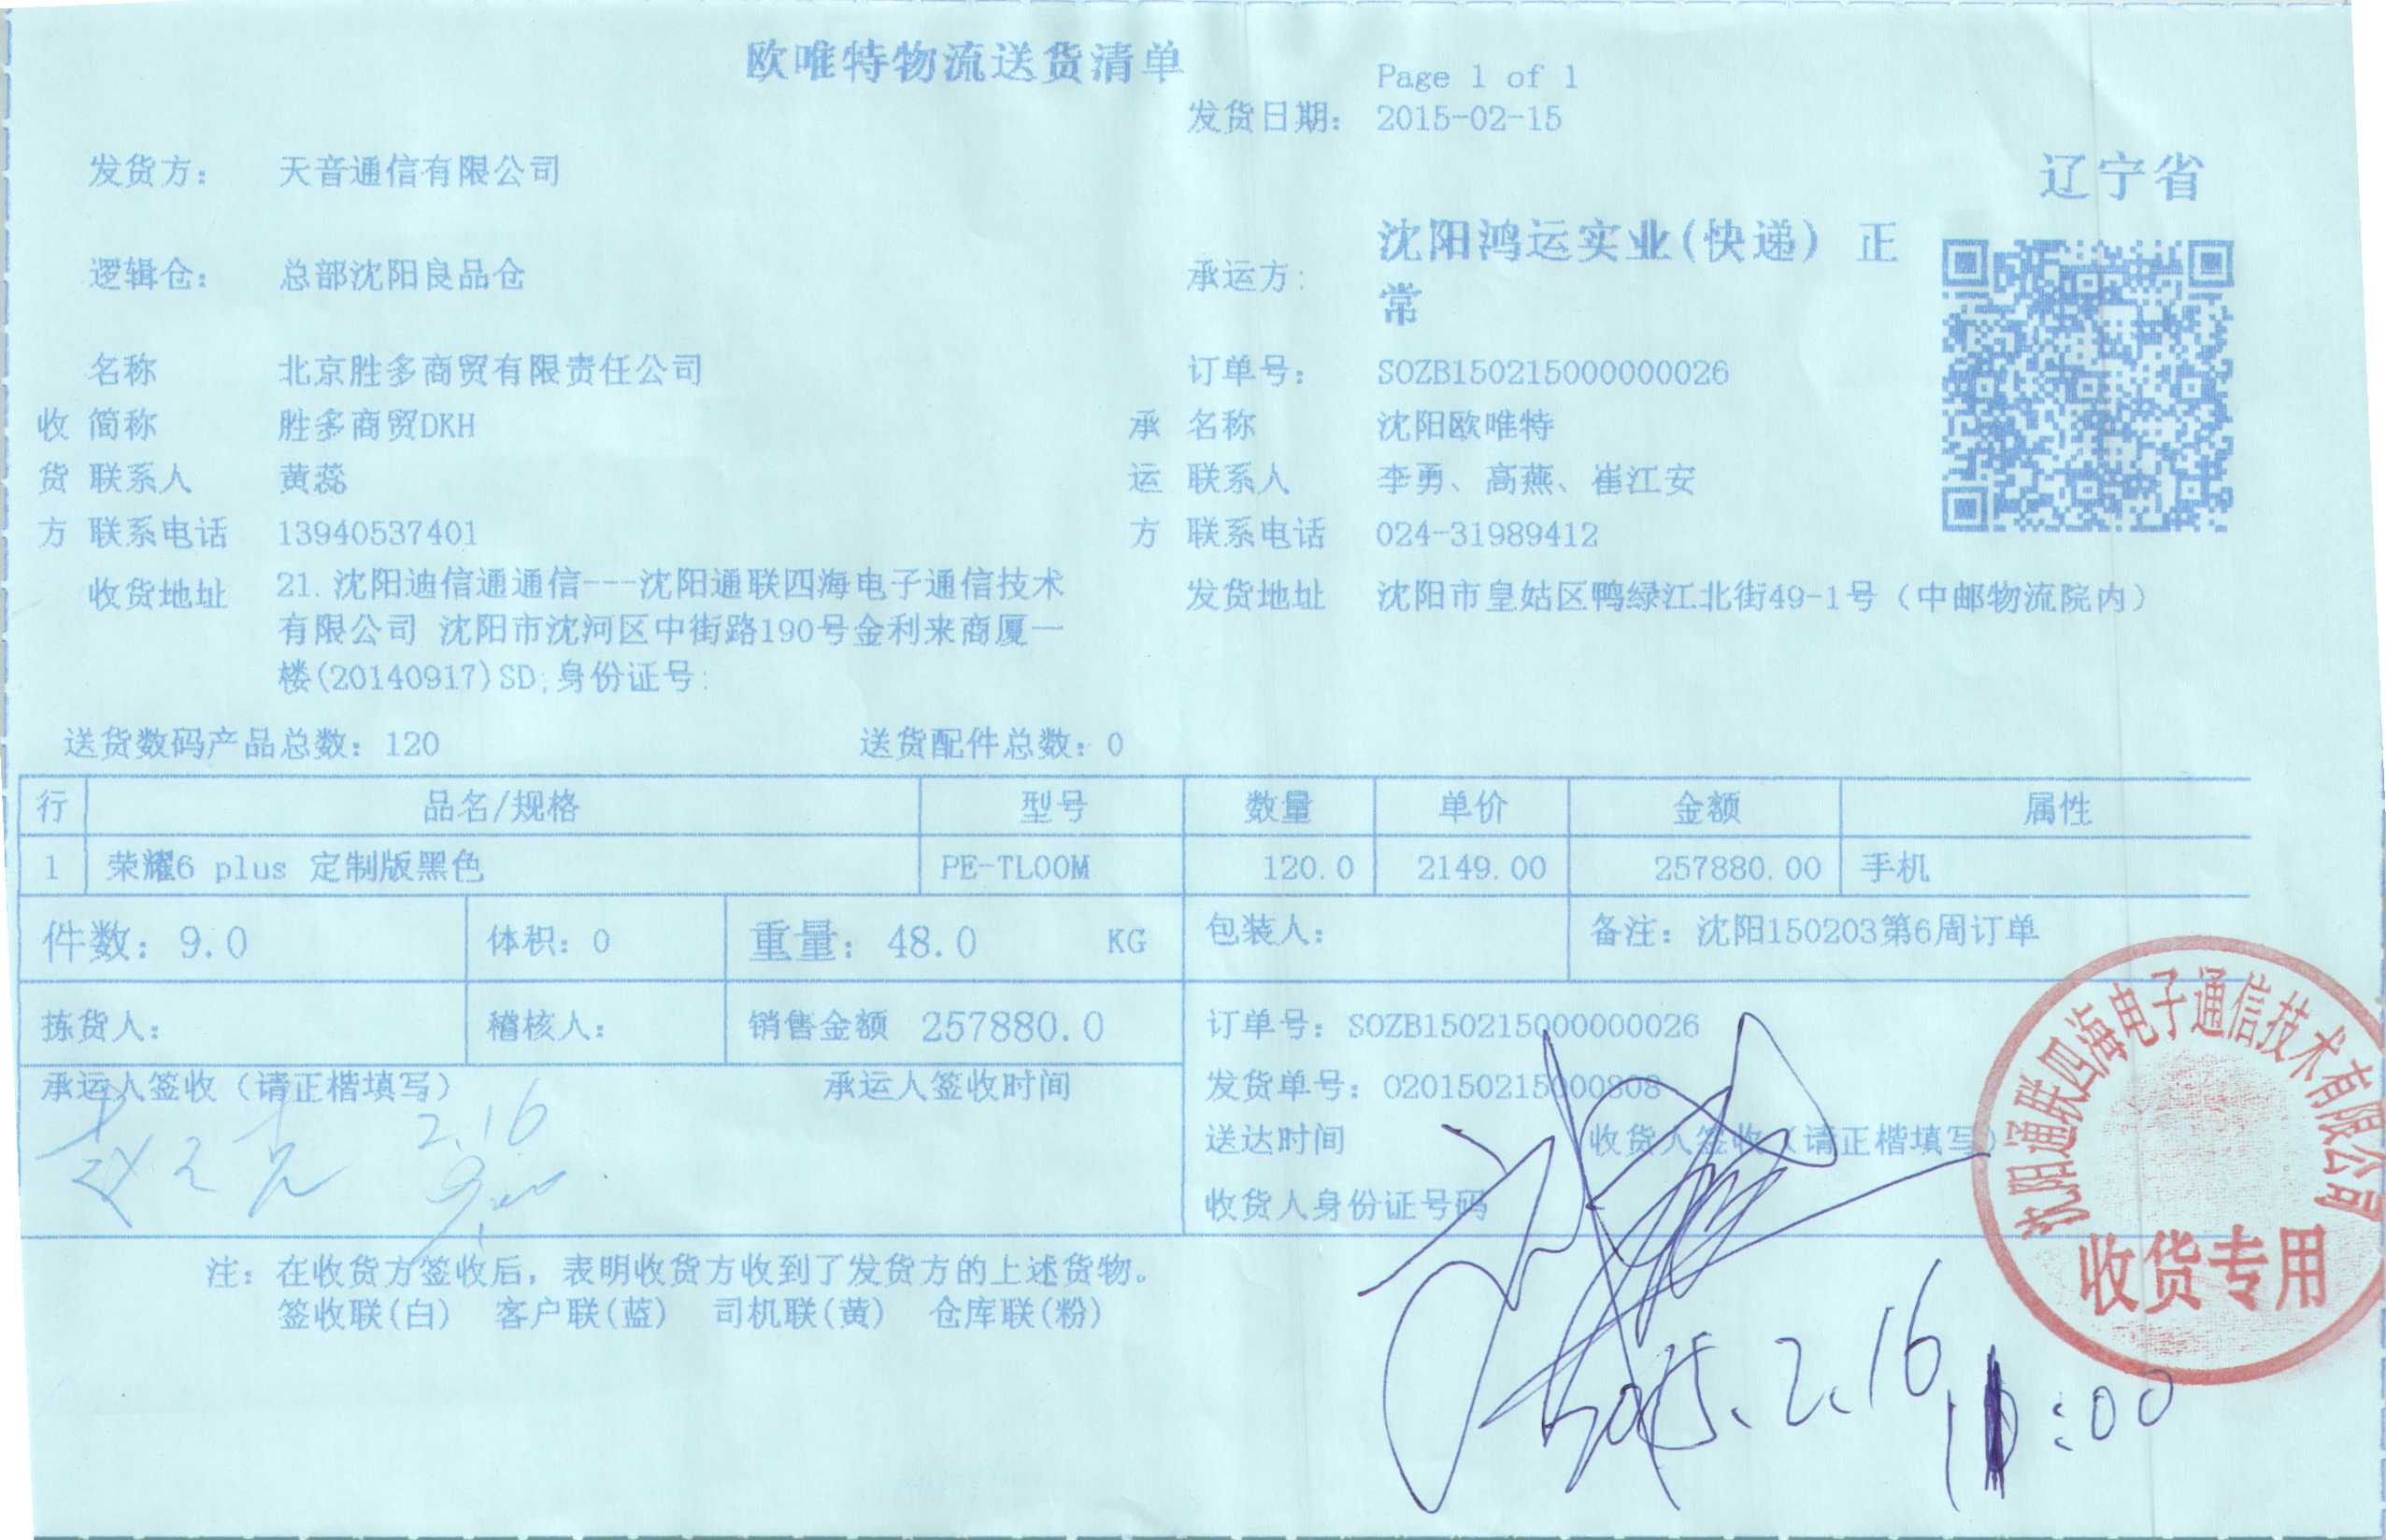 欧唯特物流送货清单
Page 1 of 1
发货日期: 2015-02-15
发货方: 天音通信有限公司
辽宁省
逻辑仓: 总部沈阳良品仓
承运方: 沈阳鸿运实业(快递) 正
常
名称 北京胜多商贸有限责任公司
订单号: SOZB150215000000026
收 简称 胜多商贸DKH
承 名称 沈阳欧唯特
货 联系人 黄蕊
运 联系人 李勇、高燕、崔江安
方 联系电话 13940537401
方 联系电话 024-31989412
收货地址 21.沈阳迪信通通信---沈阳通联四海电子通信技术
有限公司 沈阳市沈河区中街路190号金利来商厦一
楼(20140917)SD;身份证号:
发货地址 沈阳市皇姑区鸭绿江北街49-1号（中邮物流院内）
送货数码产品总数: 120 送货配件总数: 0
行 品名/规格 型号 数量 单价 金额 属性
1 荣耀6 plus 定制版黑色 PE-TL00M 120.0 2149.00 257880.00 手机
件数: 9.0 体积: 0 重量: 48.0 KG 包装人: 备注: 沈阳150203第6周订单
拣货人: 稽核人: 销售金额 257880.0 订单号: SOZB150215000000026
承运人签收（请正楷填写） 承运人签收时间
发货单号: 020150215000808
2.16
送达时间 收货人签收（请正楷填写）
收货人身份证号码
沈阳通联四海电子通信技术有限公司
收货专用
注: 在收货方签收后，表明收货方收到了发货方的上述货物。
签收联(白) 客户联(蓝) 司机联(黄) 仓库联(粉)
2015.2.16
:00